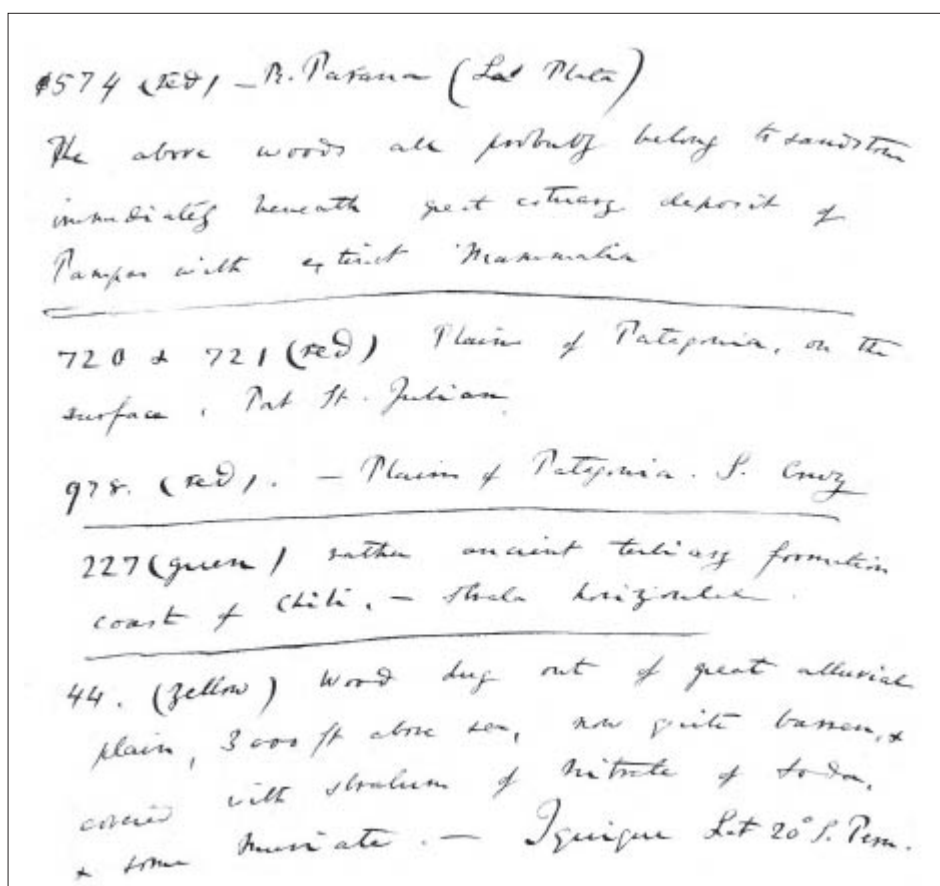 1574 (red) – R. Parana (La Plata)
The above woods all probably belong to sandstone
immediately beneath great estuary deposit of
Pampas with extinct Mammalia
720 & 721 (red) Plains of Patagonia, on the
surface. Port St. Julian
978. (red). – Plains of Patagonia. S. Cruz
227 (green) rather ancient tertiary formation
coast of Chili, – strata horizontal.
44. (yellow) Wood dug out of great alluvial
plain, 3000 ft above sea, now quite barren, &
covered with stratum of Nitrate of Soda,
& some Muriate. – Iquique Lat 20° S. Peru.